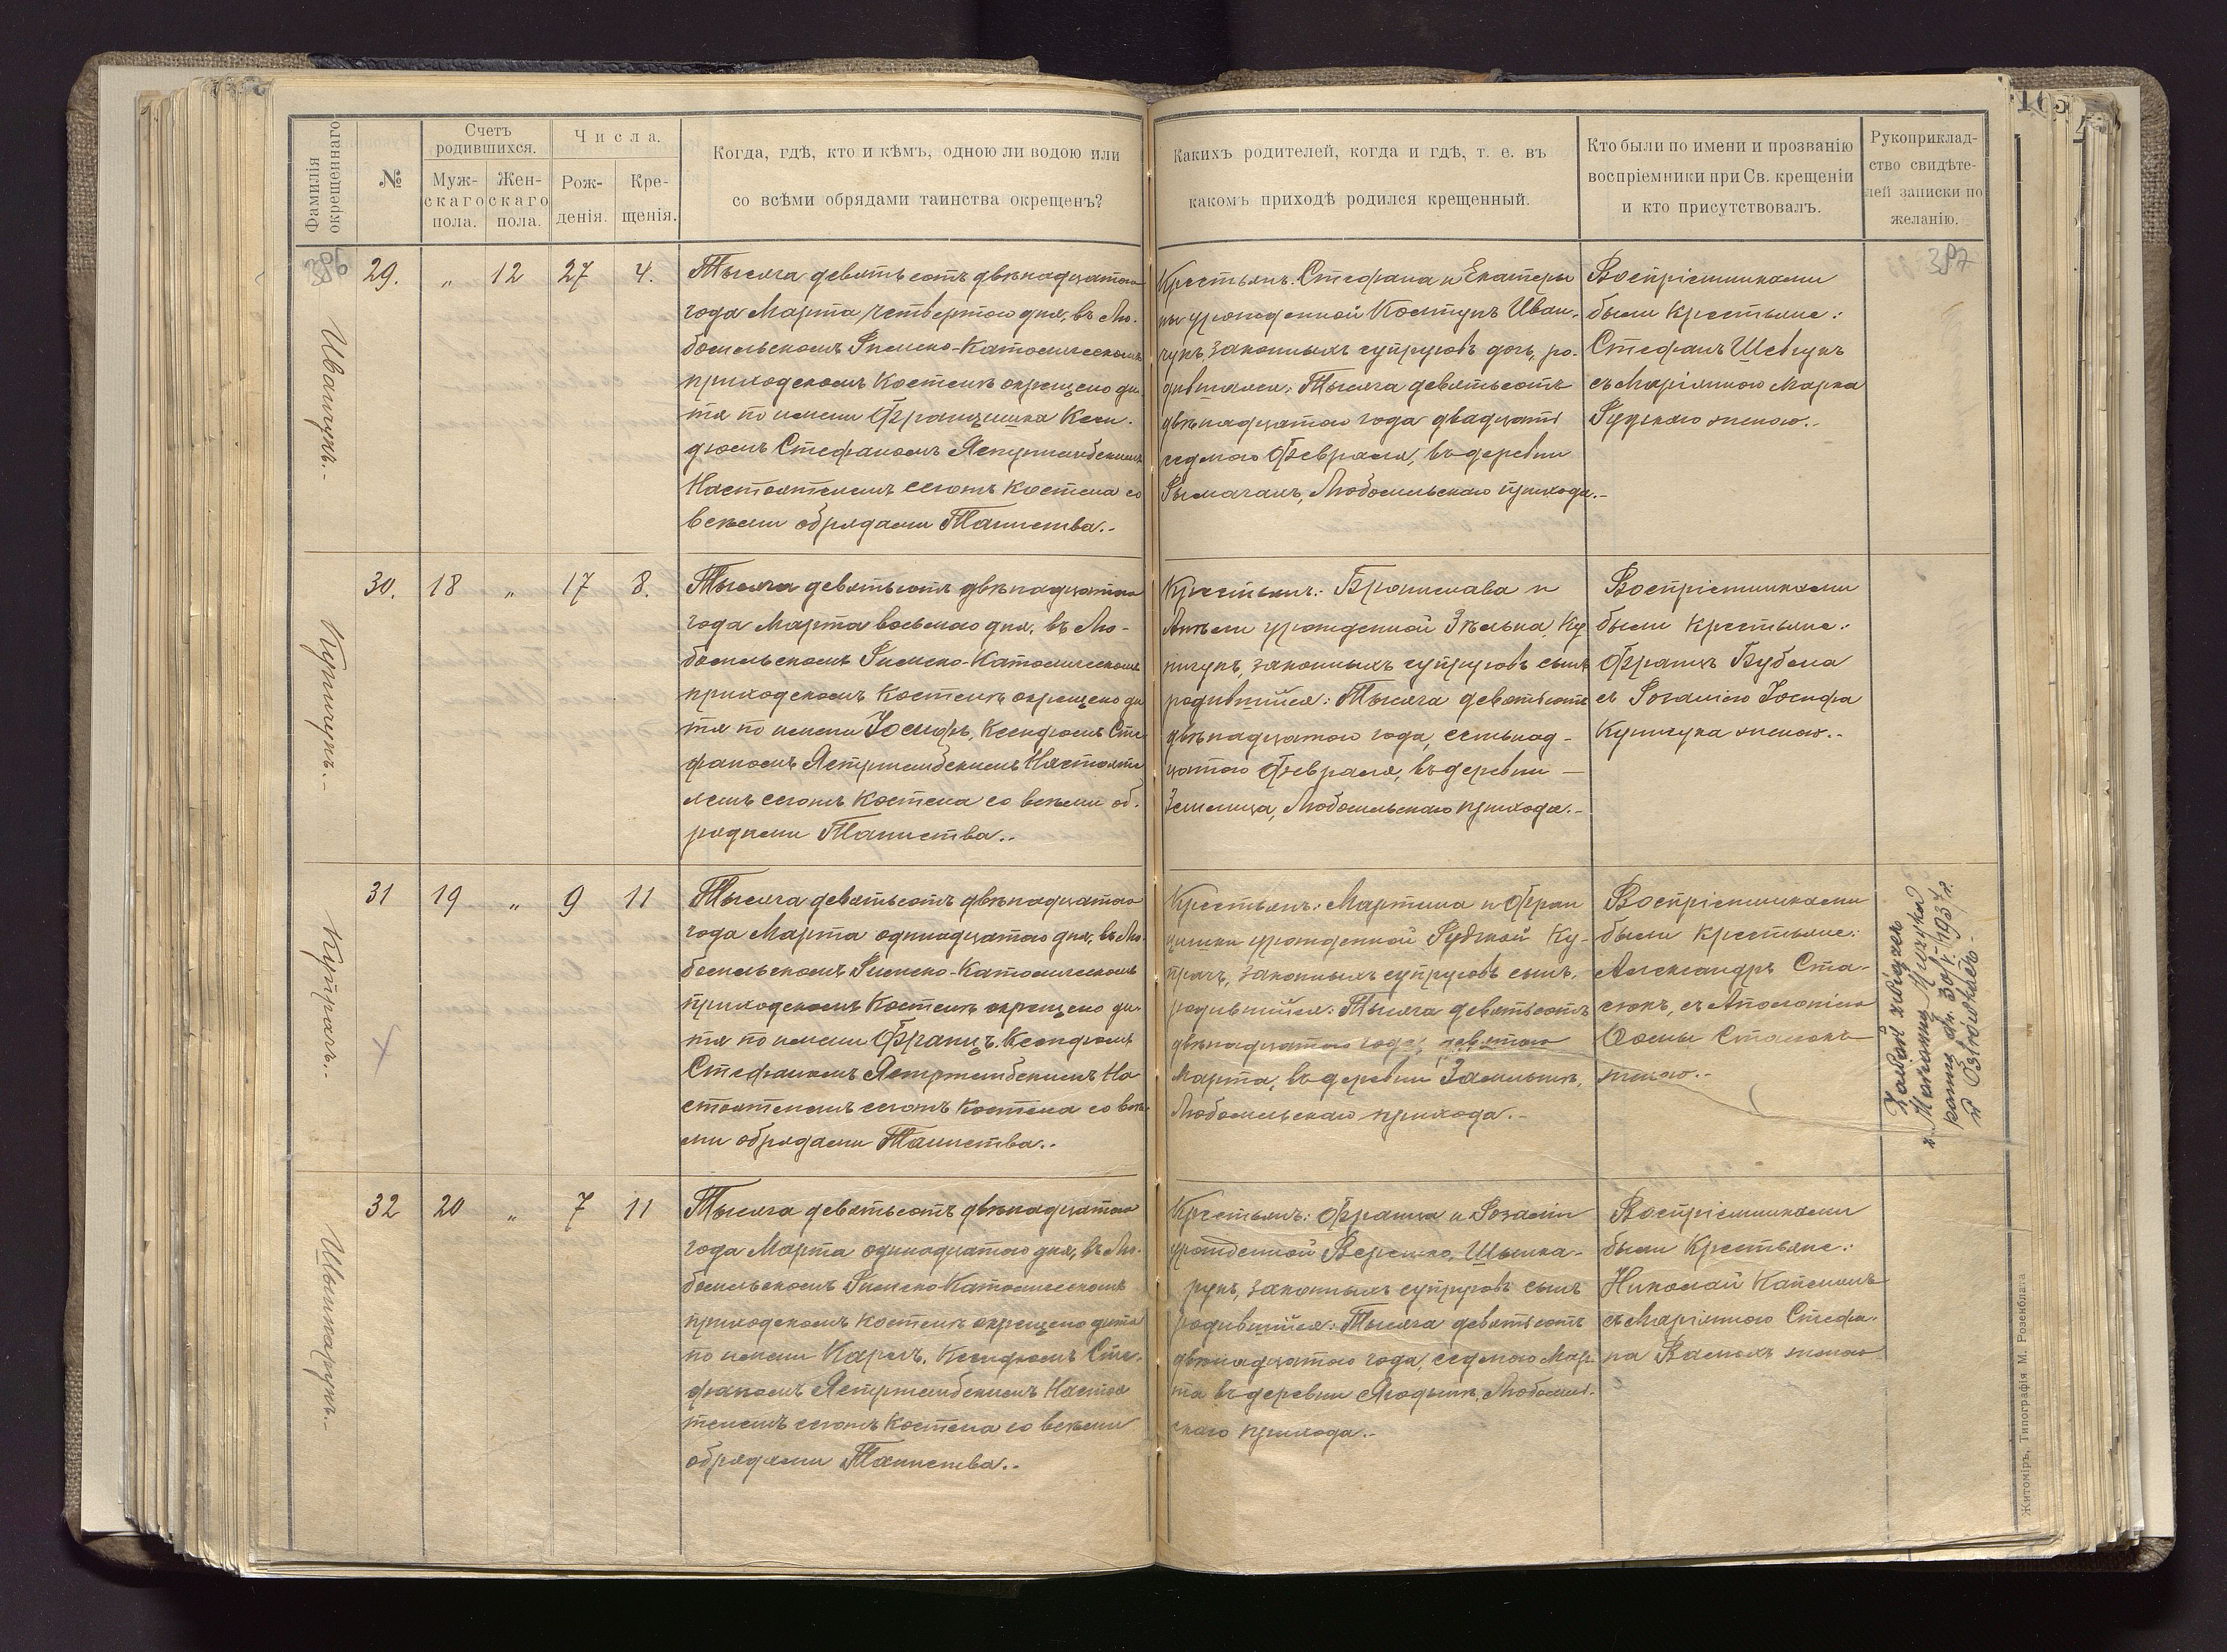 Фамилія окрещеннаго
№
Счетъ родившихся.
Мужскаго пола.
Женскаго пола.
Числа.
Рожденія.
Крещенія.
Когда, гдѣ, кто и кѣмъ, одною ли водою или
со всѣми обрядами таинства окрещенъ?
Какихъ родителей, когда и гдѣ, т. е. въ
какомъ приходѣ родился крещенный.
Кто были по имени и прозванію
воспріемники при Св. крещеніи
и кто присутствовалъ.
Рукоприклад-
ство свидѣте-
лей записки по
желанію.
386
387
Иванчукъ.-
29. „ 12 27 4.
Тысяча девятьсотъ двѣнадцатаго
года Марта четвертаго дня, въ Лю-
бомльскомъ Римско-Католическомъ
приходскомъ Костелѣ окрещено ди-
тя по имени Францишка Ксен-
дзомъ Стефаномъ Ястржембскимъ
Настоятелемъ сегожъ Костела со
всѣми обрядами Таинства.-
Крестьянъ: Стефана и Екатери
ны урожденной Костукъ Иван-
чукъ, законныхъ супруговъ дочь, ро-
дившаяся: Тысяча девятьсотъ
двѣнадцатаго года двадцать
седьмого Февраля, въ деревни
Рымачахъ, Любомльскаго прихода.-
Воспріемниками
были Крестьяне:
Стефанъ Шевчукъ
съ Маріянною Марка
Рудскаго женою.-
30. 18 „ 17 8.
Тысяча девятьсотъ двѣнадцатаго
года Марта восьмаго дня, въ Лю-
бомльскомъ Римско-Католическомъ
приходскомъ Костелѣ окрещено ди
тя по имени Іосифъ, Ксендзомъ Сте
фаномъ Ястржембскимъ Настояте
лемъ сегожъ Костела со всѣми об-
рядами Таинства.-
Крестьянъ: Бронислава и
законныхъ супруговъ сынъ
родившійся: Тысяча девятьсотъ
двѣнадцатаго года, семьнад-
цатаго Февраля, въ деревни —
Землица, Любомльскаго прихода.-
Воспріемниками
были Крестьяне:
Францъ Бубела
съ Розаліею Іосифа
женою.-
Купрахъ.-
31 19 „ 9 11
Тысяча девятьсотъ двѣнадцатаго
года Марта одинадцатаго дня, въ Лю-
бомльскомъ Римско-Католическомъ
приходскомъ Костелѣ окрещено ди-
тя по имени Францъ. Ксендзомъ
Стефаномъ Ястржембскимъ На
стоятелемъ сегожъ Костела со всѣ-
ми обрядами Таинства.-
Крестьянъ: Мартина и Фран
цишки урожденной Рудской Ку-
прахъ, законныхъ супруговъ сынъ,
родившійся: Тысяча девятьсотъ
двѣнадцатаго года, девятаго
Марта, въ деревни Замлынѣ,
Любомльскаго прихода.-
Воспріемниками
были Крестьяне:
Александръ Ста-
сюкъ, съ Аполоніею
женою.-
Zawarł związek
z Marianną Muzyką
panną dn. 30/I 1937 r.
w Ostrówkach.-
32 20 „ 7 11
Тысяча девятьсотъ двѣнадцатаго
года Марта одинадцатаго дня, въ Лю-
бомльскомъ Римско Католическомъ
приходскомъ Костелѣ окрещено дитя
по имени Каролъ. Ксендзомъ Сте-
фаномъ Ястржембскимъ Настоя
телемъ сегожъ Костела со всѣми
обрядами Таинства.-
Крестьянъ: Франца и Розаліи
урожденной Веремко, Шынка-
рукъ, законныхъ супруговъ сынъ
родившійся: Тысяча девятьсотъ
двѣнадцатаго года, седьмого Мар-
та въ деревни Ягодынѣ, Любомль-
скаго прихода.-
Воспріемниками
были Крестьяне:
Николай
съ Маріянною Стефа-
на женою
Шынкарукъ.-
Житоміръ, Типографія М. Розенблата